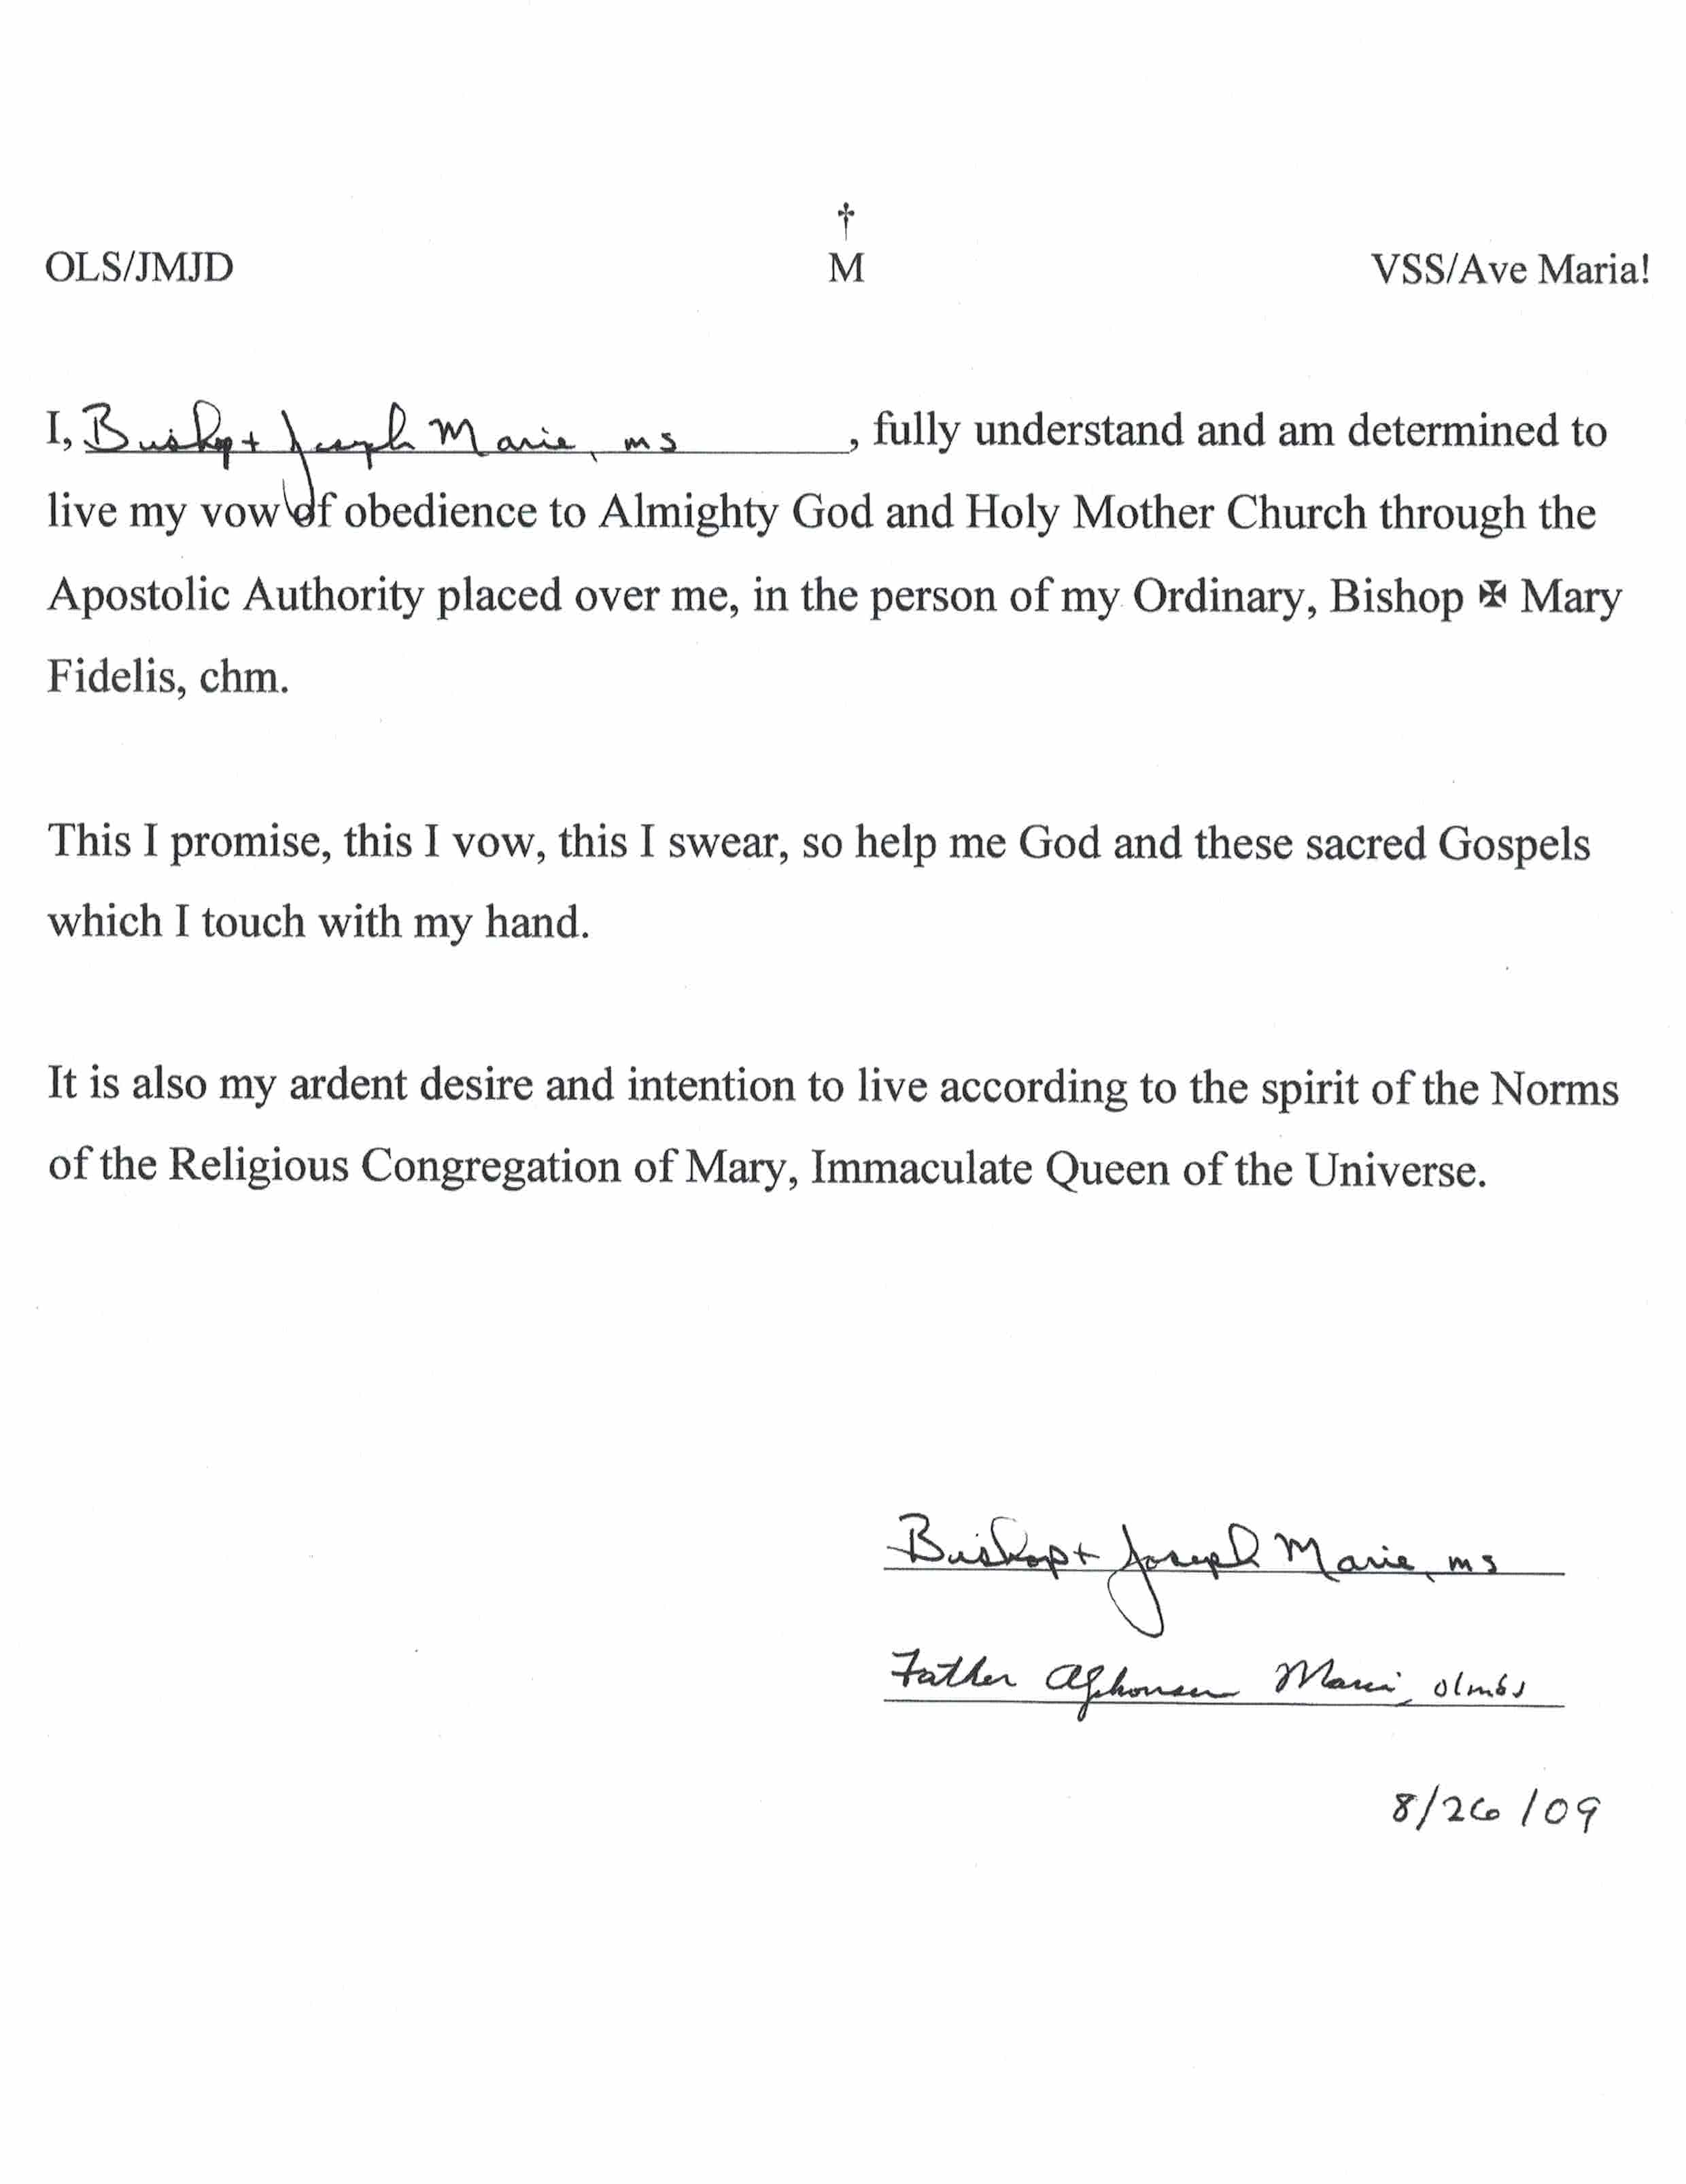 †
OLS/JMJD M VSS/Ave Maria!
I, Bishop + Joseph Marie, ms, fully understand and am determined to
live my vow of obedience to Almighty God and Holy Mother Church through the
Apostolic Authority placed over me, in the person of my Ordinary, Bishop ✠ Mary
Fidelis, chm.
This I promise, this I vow, this I swear, so help me God and these sacred Gospels
which I touch with my hand.
It is also my ardent desire and intention to live according to the spirit of the Norms
of the Religious Congregation of Mary, Immaculate Queen of the Universe.
Bishop + Joseph Marie, ms
Father Alphonsus Marie,
8/26/09